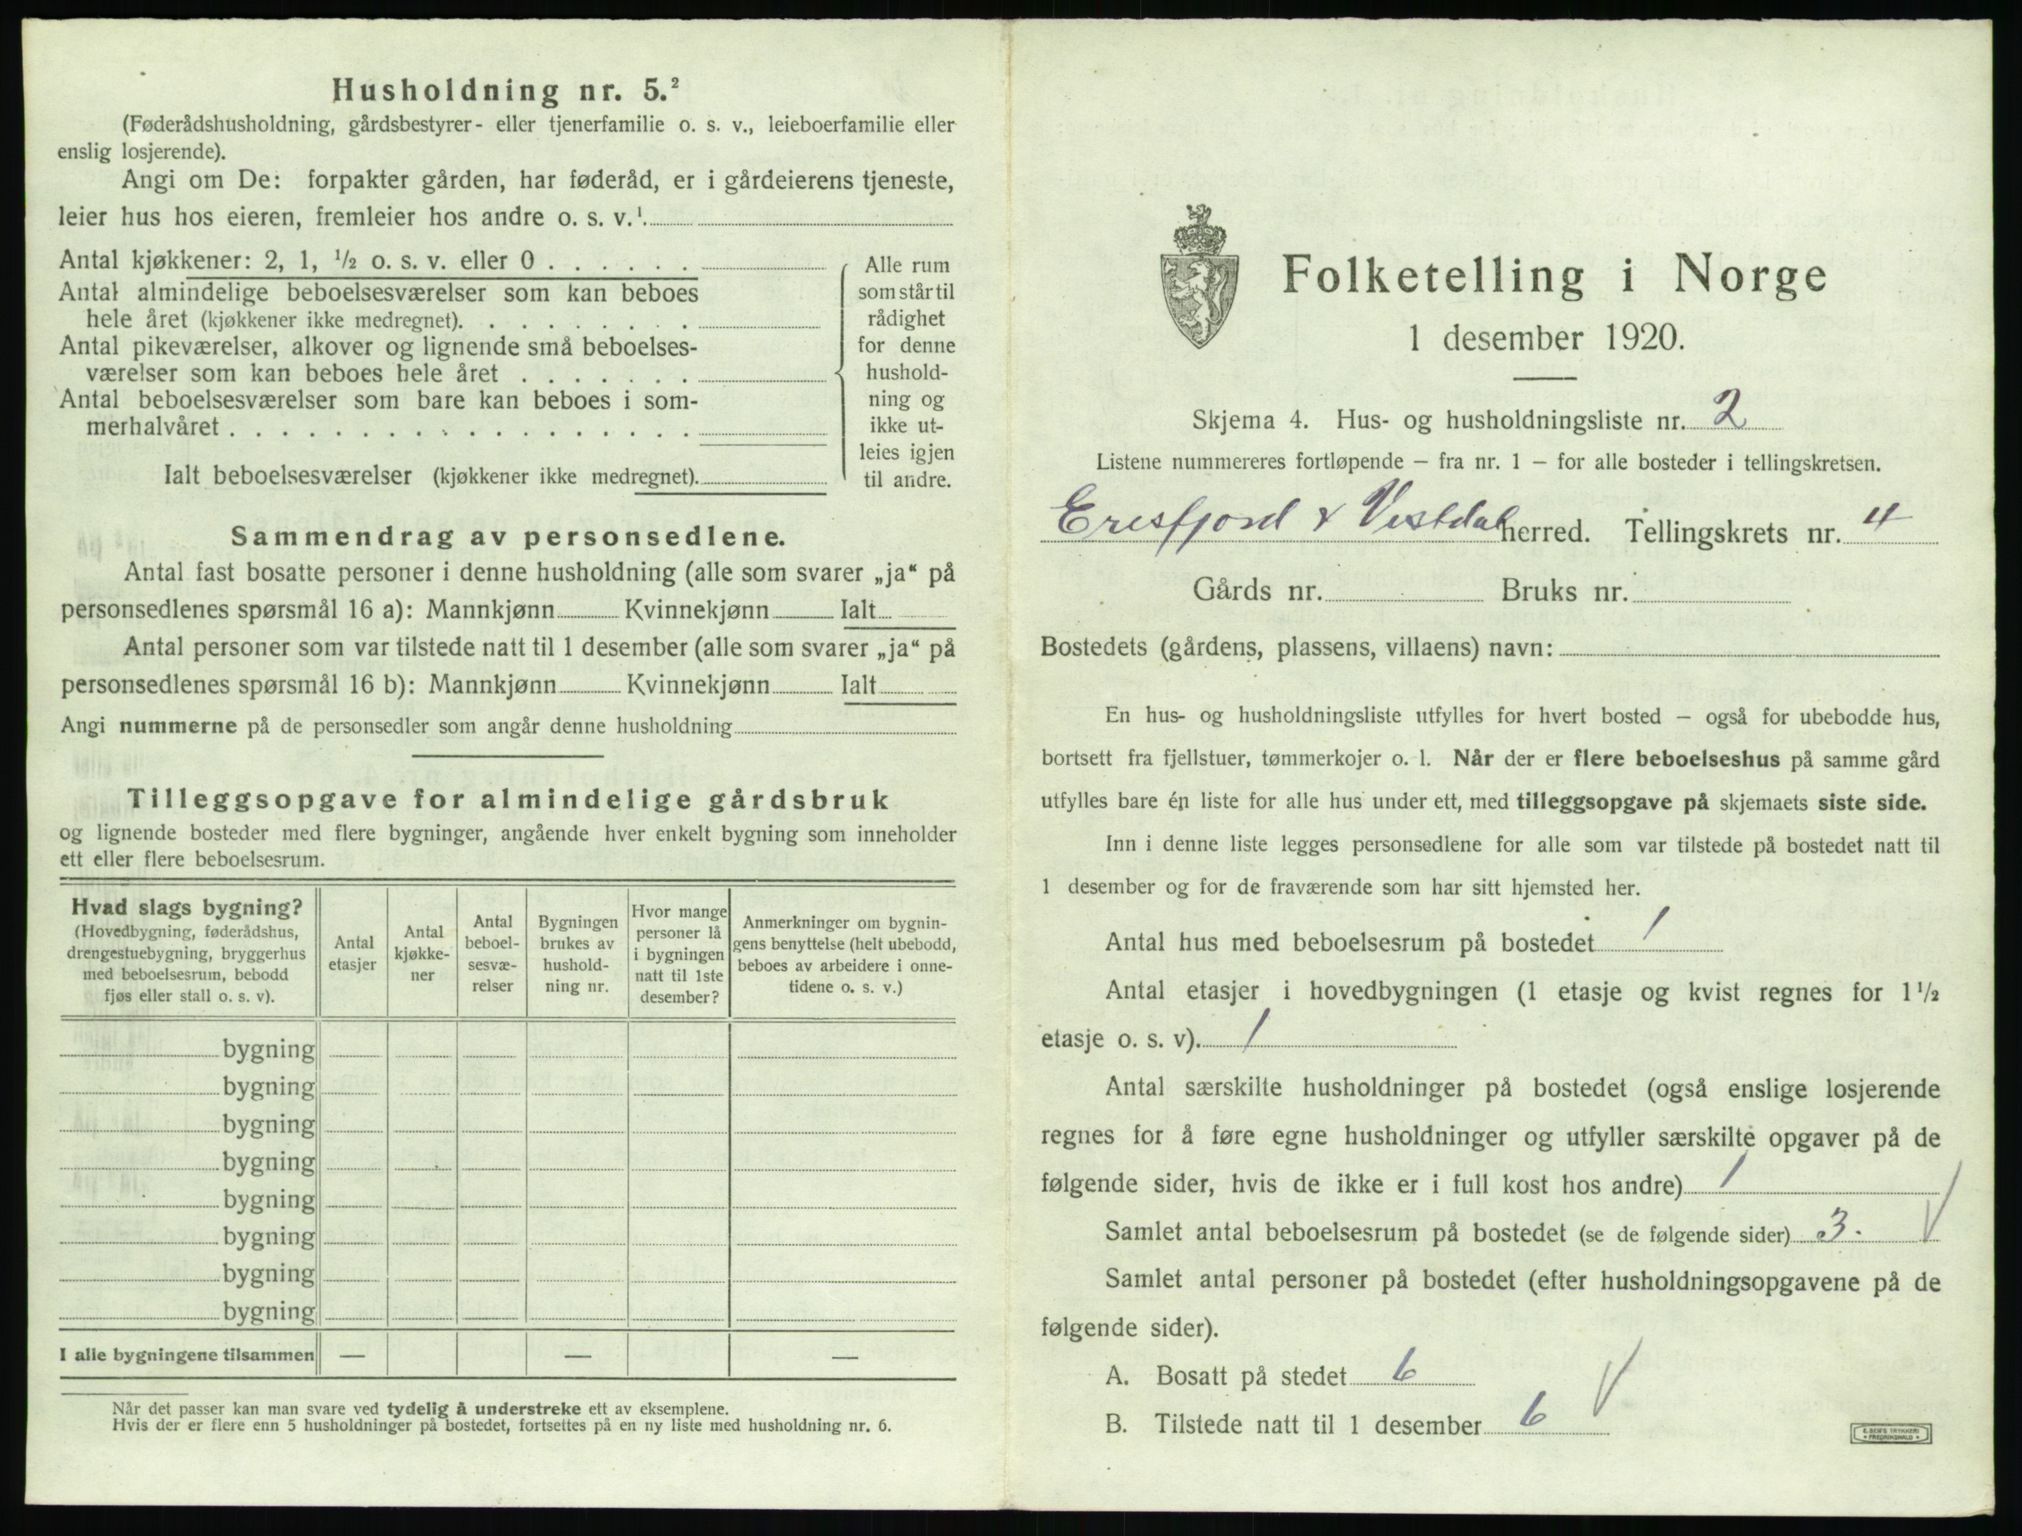 Husholdning nr. 5.²
(Føderådshusholdning, gårdsbestyrer- eller tjenerfamilie o. s. v., leieboerfamilie eller
enslig losjerende).
Angi om De: forpakter gården, har føderåd, er i gårdeierens tjeneste,
leier hus hos eieren, fremleier hos andre o. s. v.¹
Antal kjøkkener: 2, 1, ½ o. s. v. eller 0 . . . . . .
Antal almindelige beboelsesværelser som kan beboes
hele året (kjøkkener ikke medregnet). . . . . . . . .
Antal pikeværelser, alkover og lignende små beboelses-
værelser som kan beboes hele året . . . . . . .
Antal beboelsesværelser som bare kan beboes i som-
merhalvåret . . . . . . . . . . . . . . . . . .
Ialt beboelsesværelser (kjøkkener ikke medregnet).
Alle rum
som står til
rådighet
for denne
hushold-
ning og
ikke ut-
leies igjen
til andre.
Sammendrag av personsedlene.
Antal fast bosatte personer i denne husholdning (alle som svarer „ja“ på
personsedlenes spørsmål 16 a): Mannkjønn Kvinnekjønn Ialt
Antal personer som var tilstede natt til 1 desember (alle som svarer „ja“ på
personsedlenes spørsmål 16 b): Mannkjønn Kvinnekjønn Ialt
Angi nummerne på de personsedler som angår denne husholdning
Tilleggsopgave for almindelige gårdsbruk
og lignende bosteder med flere bygninger, angående hver enkelt bygning som inneholder
ett eller flere beboelsesrum.
Hvad slags bygning?
(Hovedbygning, føderådshus,
drengestuebygning, bryggerhus
med beboelsesrum, bebodd
fjøs eller stall o. s. v).
Antal
etasjer
Antal
kjøkke-
ner
Antal
beboel-
sesvæ-
relser
Bygningen
brukes av
hushold-
ning nr.
Hvor mange
personer lå
i bygningen
natt til 1ste
desember?
Anmerkninger om bygnin-
gens benyttelse (helt ubebodd,
beboes av arbeidere i onne-
tidene o. s. v.)
bygning
bygning
bygning
bygning
bygning
bygning
bygning
bygning
I alle bygningene tilsammen — — —
Når det passer kan man svare ved tydelig å understreke ett av eksemplene.
Hvis der er flere enn 5 husholdninger på bostedet, fortsettes på en ny liste med husholdning nr. 6.
Folketelling i Norge
1 desember 1920.
Skjema 4. Hus- og husholdningsliste nr. 2
Listene nummereres fortløpende – fra nr. 1 – for alle bosteder i tellingskretsen.
Eresfjord & Vistdal herred. Tellingskrets nr. 4
Gårds nr. Bruks nr.
Bostedets (gårdens, plassens, villaens) navn:
En hus- og husholdningsliste utfylles for hvert bosted – også for ubebodde hus,
bortsett fra fjellstuer, tømmerkojer o. l. Når der er flere beboelseshus på samme gård
utfylles bare én liste for alle hus under ett, med tilleggsopgave på skjemaets siste side.
Inn i denne liste legges personsedlene for alle som var tilstede på bostedet natt til
1 desember og for de fraværende som har sitt hjemsted her.
Antal hus med beboelsesrum på bostedet 1
Antal etasjer i hovedbygningen (1 etasje og kvist regnes for 1½
etasje o. s. v). 1
Antal særskilte husholdninger på bostedet (også enslige losjerende
regnes for å føre egne husholdninger og utfyller særskilte opgaver på de
følgende sider, hvis de ikke er i full kost hos andre) 1
Samlet antal beboelsesrum på bostedet (se de følgende sider) 3.
Samlet antal personer på bostedet (efter husholdningsopgavene på de
følgende sider).
A. Bosatt på stedet 6
B. Tilstede natt til 1 desember 6